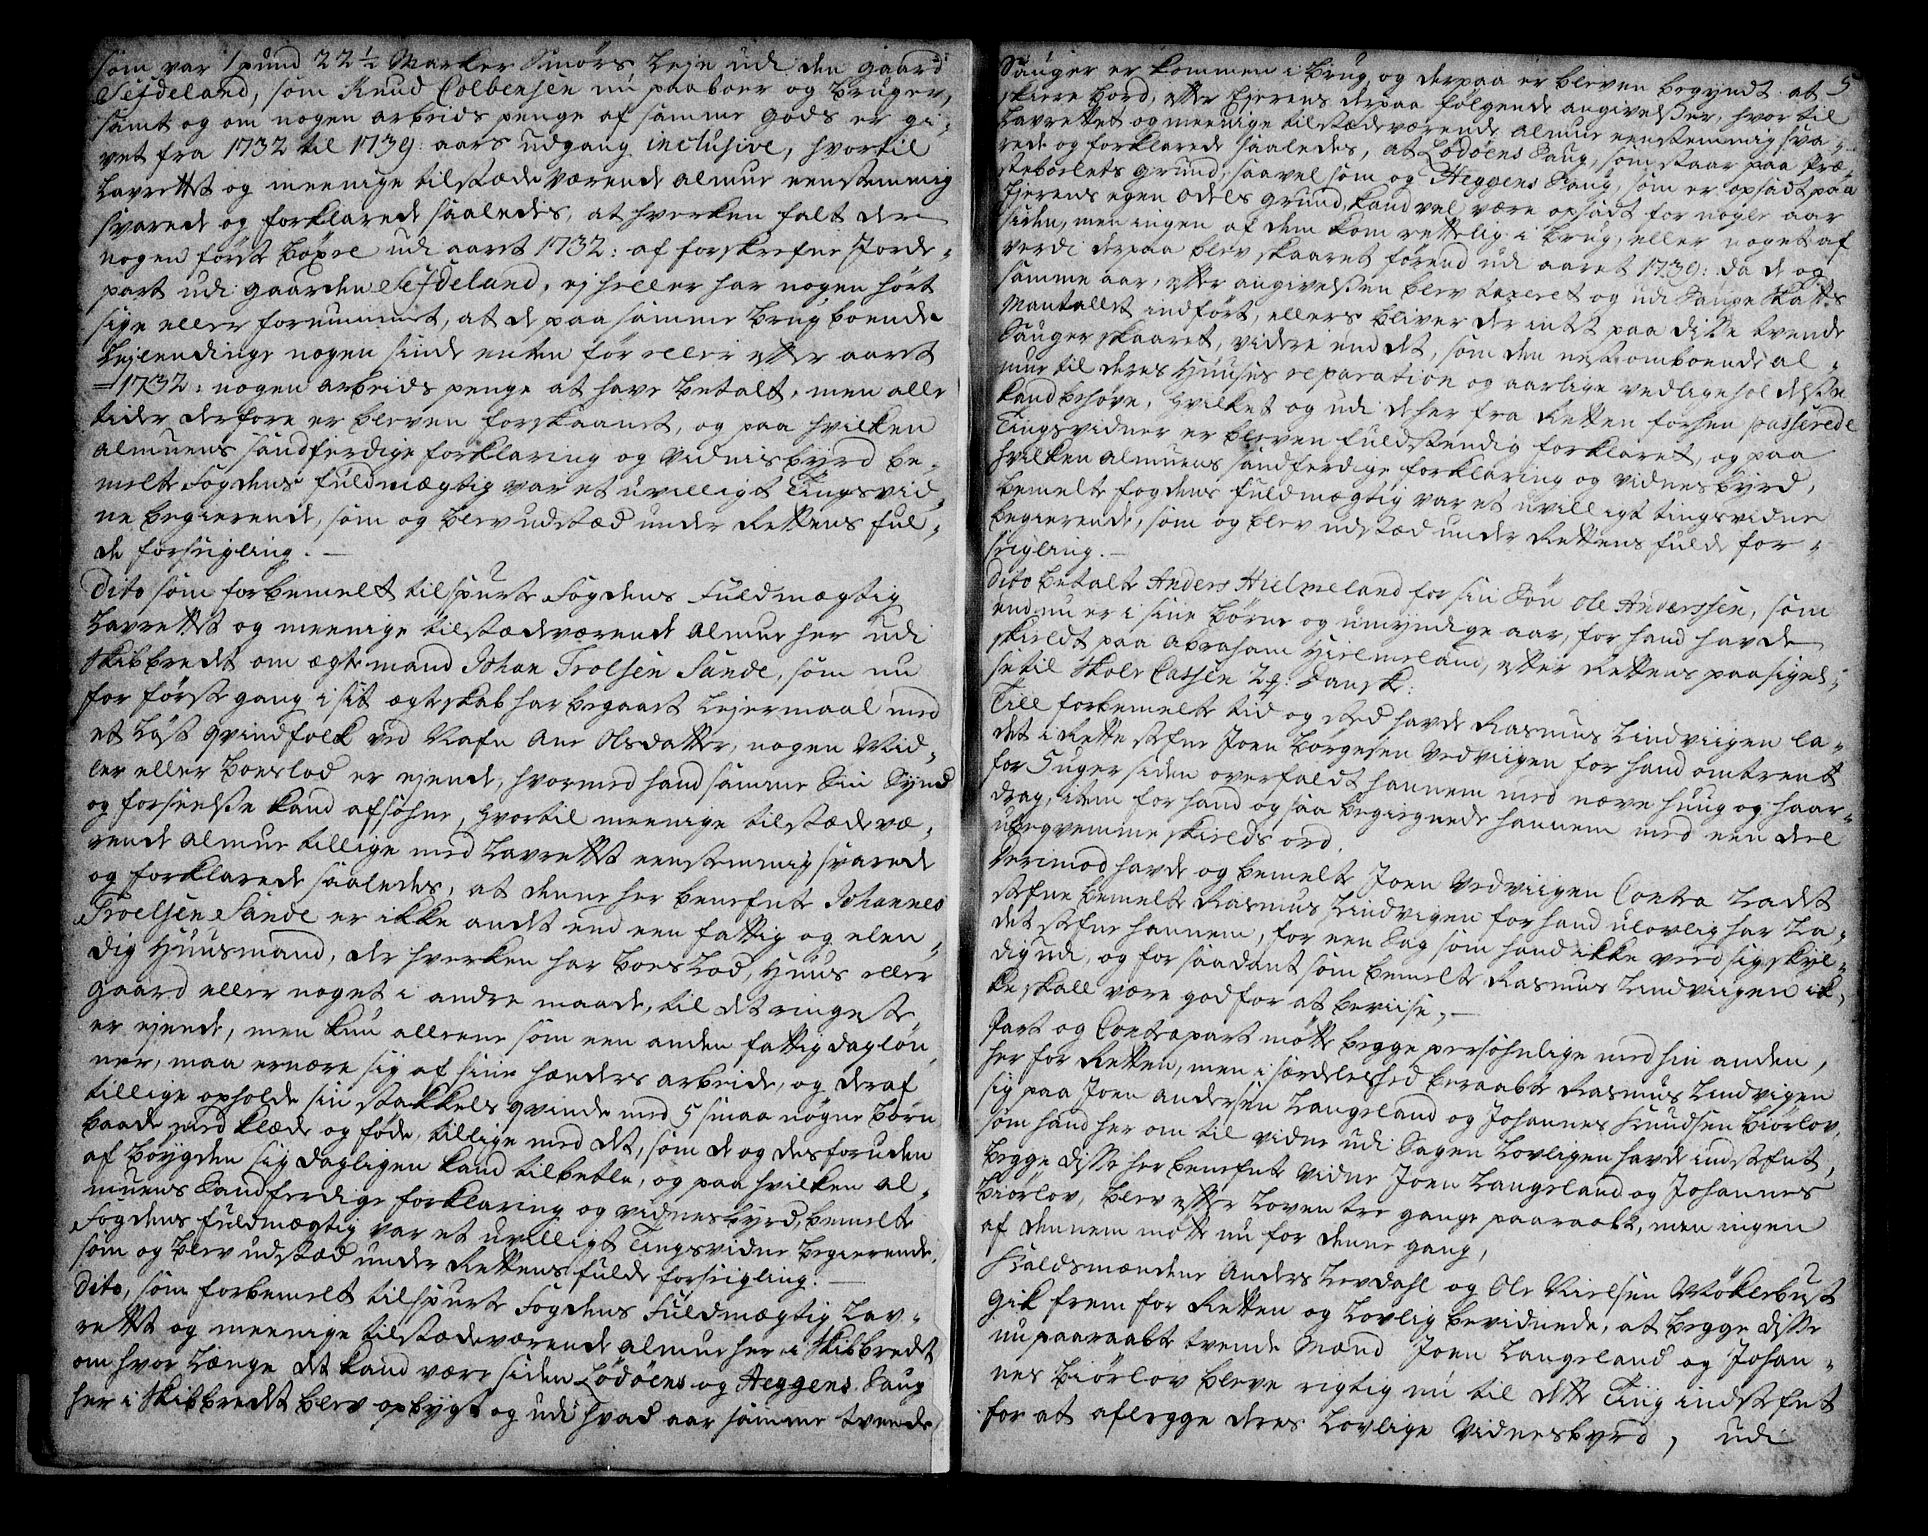 som var 1 pund 22 ½ Marker Smørs Leje udi den gaard
Sejdeland, som Knud Colbensen nu paaboer og bruger,
samt og om nogen arbeids penge af samme Gods er gi-
vet fra 1732 til 1739: aars udgang inclusive, hvortil
Lavrettet og meenige tilstædeværende almue eenstemmig
svarede og forklarede saaledes, at hverken falt der
nogen første Bøxel udi aaret 1732: af forskrefne Jorde-
part udi gaarden Sejdeland, ej heller har nogen hørt
sige eller fornummet, at de paa samme brug boende
Lejlendinge nogen sinde enten før eller etter aaret
1732: nogen arbeids penge at have betalt, men alle
tider derfore er bleven forskaanet, og paa hvilken
almuens sandferdige forklaring og vidnisbyrd be-
melte Fogdens fuldmægtig var et uvilligt Tingsvid-
ne begierende, som og blev udstæd under Rettens ful-
de forseigling. —
Dito som forbemelt tilspurte Fogdens Fuldmægtig
Lavrettet og meenige tilstædeværende almue her udi
Skibbredet om ægtemand Johan Trolsen Sande, som nu
for første gang i sit ægteskab har begaaet Lejermaal med
et Løst qvindfolk ved Nafn Ane Olsdatter, nogen Mid-
ler eller Boeslod er ejende, hvormed hand samme Sin Synd
og forseelse kand afsohne, hvortil meenige tilstædevæ-
rende almue tillige med Lavrettet eenstemmig svarede
og forklarede saaledes, at denne her benefnte Johannes
Troelsen Sande er ikke andet end een fattig og elen-
dig Huusmand, der hverken har Boeslod, Huus eller
gaard eller noget i andre maade, til det ringeste
er ejende, men kun alleene som een anden fattig dagløn-
ner, maa ernære sig af sine hænders arbeide, og deraf
tillige opholde sin stakkels qvinde med 5 smaa nøgne børn
baade med klæde og føde, tillige med det, som de og desforuden
af Bøygden sig dagligen kand tilbetle, og paa hvilken al-
muens Sandferdige forklaring og vidnesbyrd, bemelte
Fogdens fuldmægtig var et uvilligt Tingsvidne begierende,
som og blev udstæd under Rettens fulde forseigling. —
Dito, som forbemelt tilspurte Fogdens Fuldmægtig Lav-
rettet og meenige tilstædeværende almue her i Skibbredet
om hvor Længe det kand være siden Lødøens og Heggens Saug
her i Skibbredet blev opbygt og udi hvad aar samme tvende
5
Sauger er kommen i brug, og derpaa er bleven begyndt at
skiere bord, etter Ejerens derpaa følgende angivelser, hvor til
Lavrettet og meenige tilstædeværende almue eenstemmig sva-
rede og forklarede saaledes, at Lødøens Saug, som staar paa Præ-
stebolets grund, saavel som og Heggens Saug, som er opsadt paa
Ejerens egen odels grund, kand vel være opsadt for nogle aar
siden, men ingen af dem kom rettelig i brug, eller noget af
verdi derpaa blev skaaret førend udi aaret 1739: da de og
samme aar, etter angivelsen blev taxeret og udi Sauge Skatts
Mantallet indført, ellers bliver der intet paa disse tvende
Sauger skaaret, videre end det, som den nestomboende al-
mue til deres Huuses reparation og aarlige vedligeholdelse
kand behøve, hvilket og udi de her fra Retten forhen passerede
Tingsvidner er bleven fuldstendig forklaret, og paa
hvilken almuens sandferdige forklaring og vidnesbyrd,
bemelte fogdens fuldmægtig var et uvilligt tingsvidne
begierende, som og blev udstæd under Rettens fulde for-
seigling. —
Dito betalte Anders Hielmeland for sin Søn Ole Anderssen, som
endnu er i sine Børne og umyndige aar, for hand havde
skieldt paa Abraham Hielmeland, etter Rettens paasigel-
se til Skole Cassen 24: Dansk:
Till forbemelte tid og sted havde Rasmus Lindviigen la-
det i Rette stefne Joen Børgesen Vedviigen for hand omtrent
for 5 uger siden overfaldt hannem med næve huug og haar-
drag, item for hand og saa begiegnede hannem med een deel
ubeqvemme skields ord.
Derimod havde og bemelte Joen Vedviigen Contra Ladet
stefne bemelte Rasmus Lindvigen for hand ulovlig har La-
det stefne hannem, for een Sag som hand ikke veed sig skyl-
dig udi, og for saadant som bemelte Rasmus Lindviigen ik-
ke skall være god for at beviise, —
Part og Contrapart mötte begge persohnlige med hin anden,
her for Retten, men i særdeleshed beraabte Rasmus Lindvigen
sig paa Joen andersen Langeland og Johannes Knudsen Biörlov,
som hand her om til vidne udi Sagen Lovligen havde indstefnt,
Begge disse her benefnte Vidne Joen Langeland og Johannes
Biörlov, blev etter Loven tre gange paaraabt, men ingen
af dennem mötte nu for denne gang,
Kaldsmændene Anders Levdahl og Ole Nielsen Møklebust
gik frem for Retten og Lovlig bevidnede, at begge disse
nu paaraabte tvende Mænd Joen Langeland og Johan-
nes Biörlov bleve rigtig nu til dette Ting indstefnt
for at aflegge deres Lovlige vidnesbyrd, udi